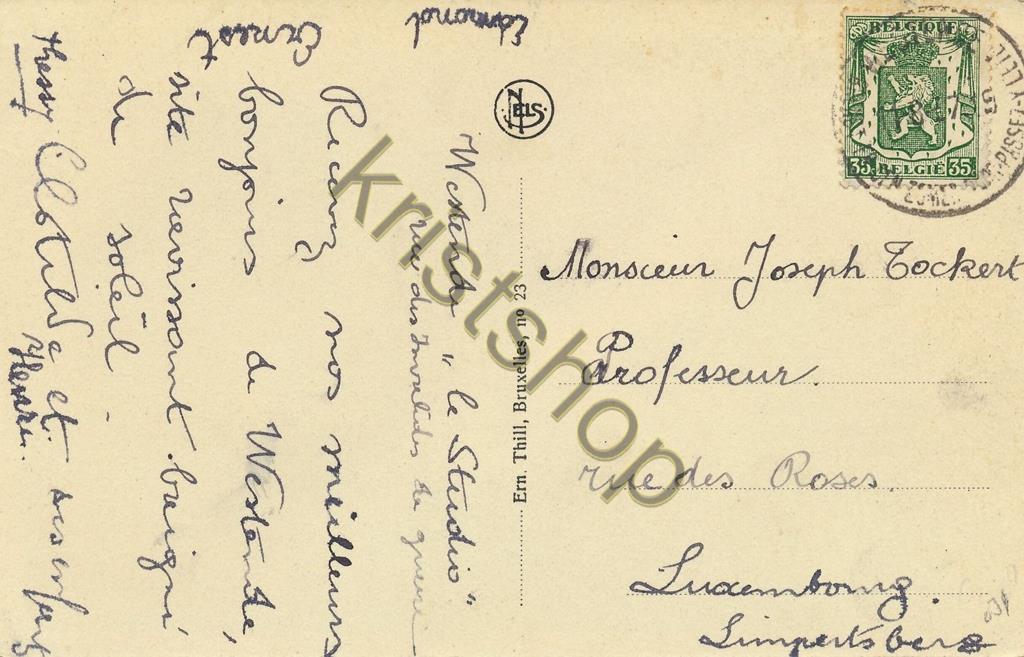 Westende "le Studio"
rue des Invalides de guerre
Recevez nos meilleurs
bonjours de Westende,
site ravissant baigné
de soleil.
Clotilde et ses enfants
Thessy
Henri.
Ernest
Edmond
NELS
Ern. Thill, Bruxelles, no 23
BELGIQUE
35c BELGIË 35c
Monsieur Joseph Tockert
Professeur.
rue des Roses.
Luxembourg.
Limpertsberg
kristshop